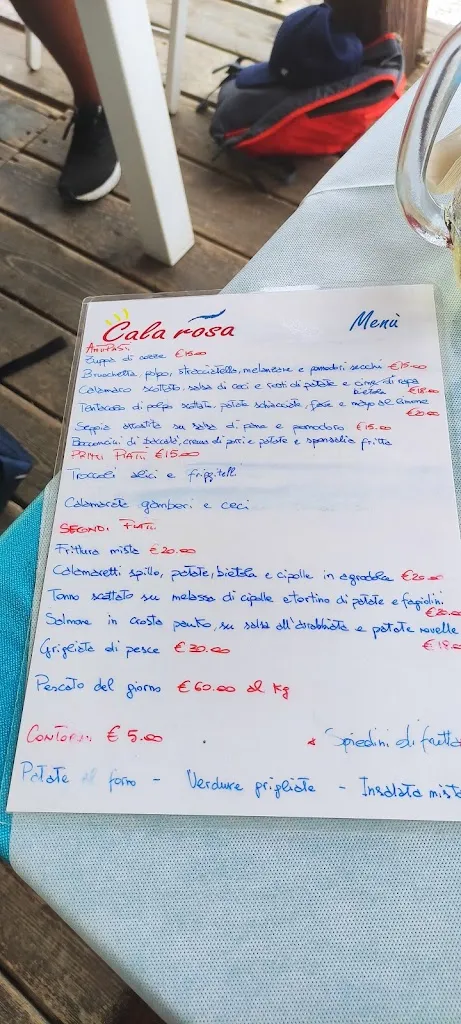 Cala rosa
Menù
ANTIPASTI
Zuppa di cozze €15.00
Bruschetta polpo, stracciatella, melanzane e pomodori secchi €15.00
Calamaro scottato, salsa di ceci e resti di patate e cime di rapa
bietola €18.00
Tentacolo di polpo scottato, patate schiacciate, fave e mayo al limone
€20.00
Seppia arrostita su salsa di pane e pomodoro €15.00
Bocconcini di baccalà, crema di porri e patate e sponsalia fritta
PRIMI PIATTI €15.00
Troccoli alici e friggitelli
Calamarata gamberi e ceci
SECONDI PIATTI
Frittura mista €20.00
Calamaretti spillo, patate, bietola e cipolle in agrodolce €20.00
Tonno scottato su melassa di cipolle e tortino di patate e fagiolini
€20.00
Salmone in crosta panko, su salsa all'arrabbiata e patate novelle
€18.00
Grigliata di pesce €30.00
Pescato del giorno €60.00 al Kg
CONTORNI €5.00
* Spiedini di frutta
Patate al forno - Verdure grigliate - Insalata mista